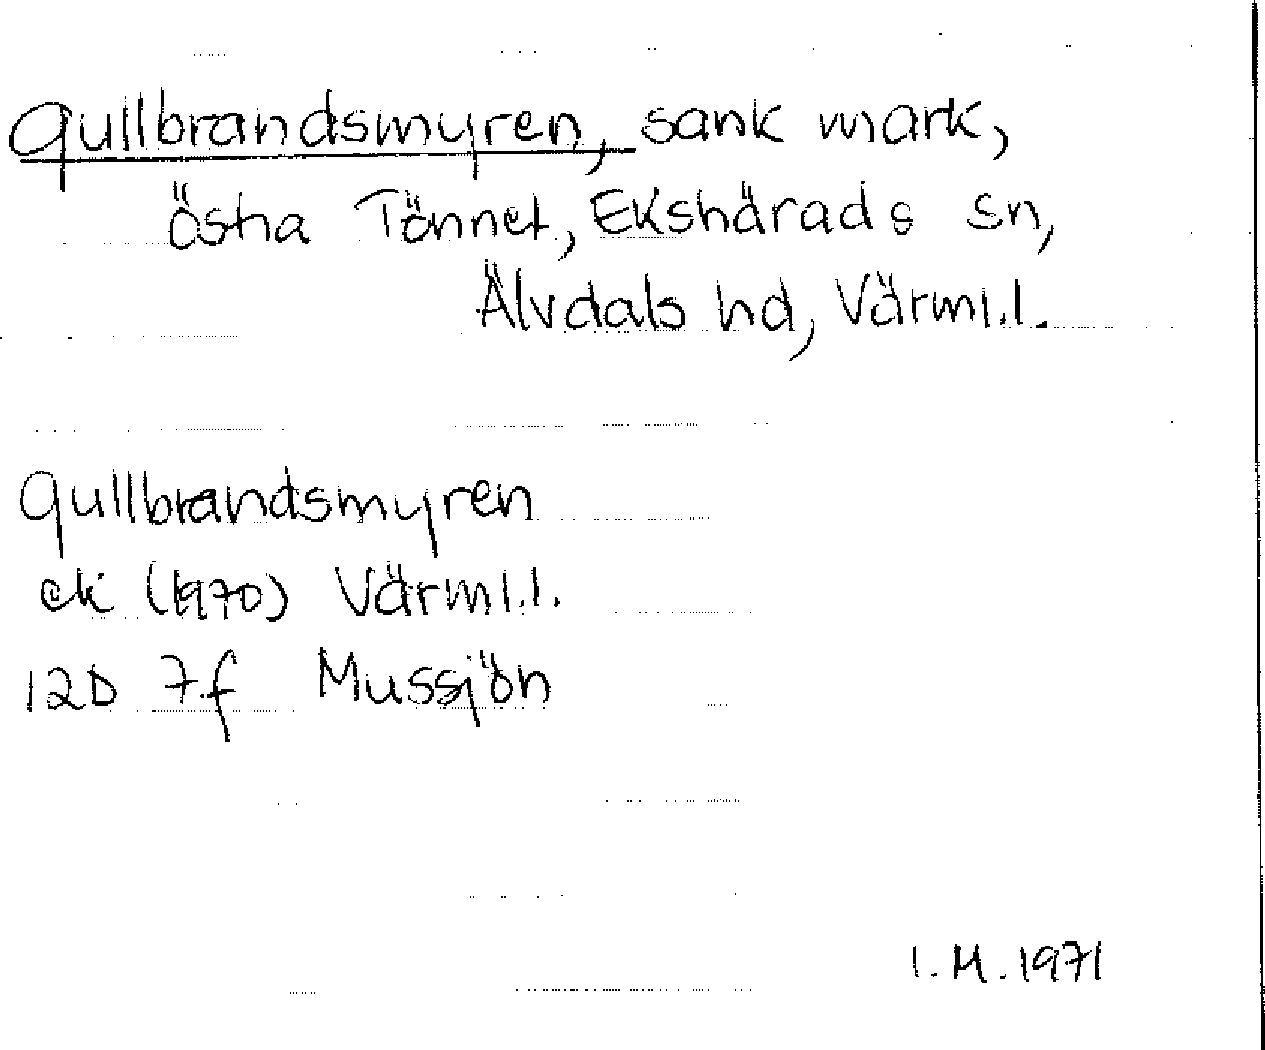 Gullbrandsmyren, sank mark,
östra Tönnet, Ekshärads sn,
Älvdals hd, Värml.l.
Gullbrandsmyren
ek (1970) Värml.l.
12D 7f Mussjön
I.M.1971